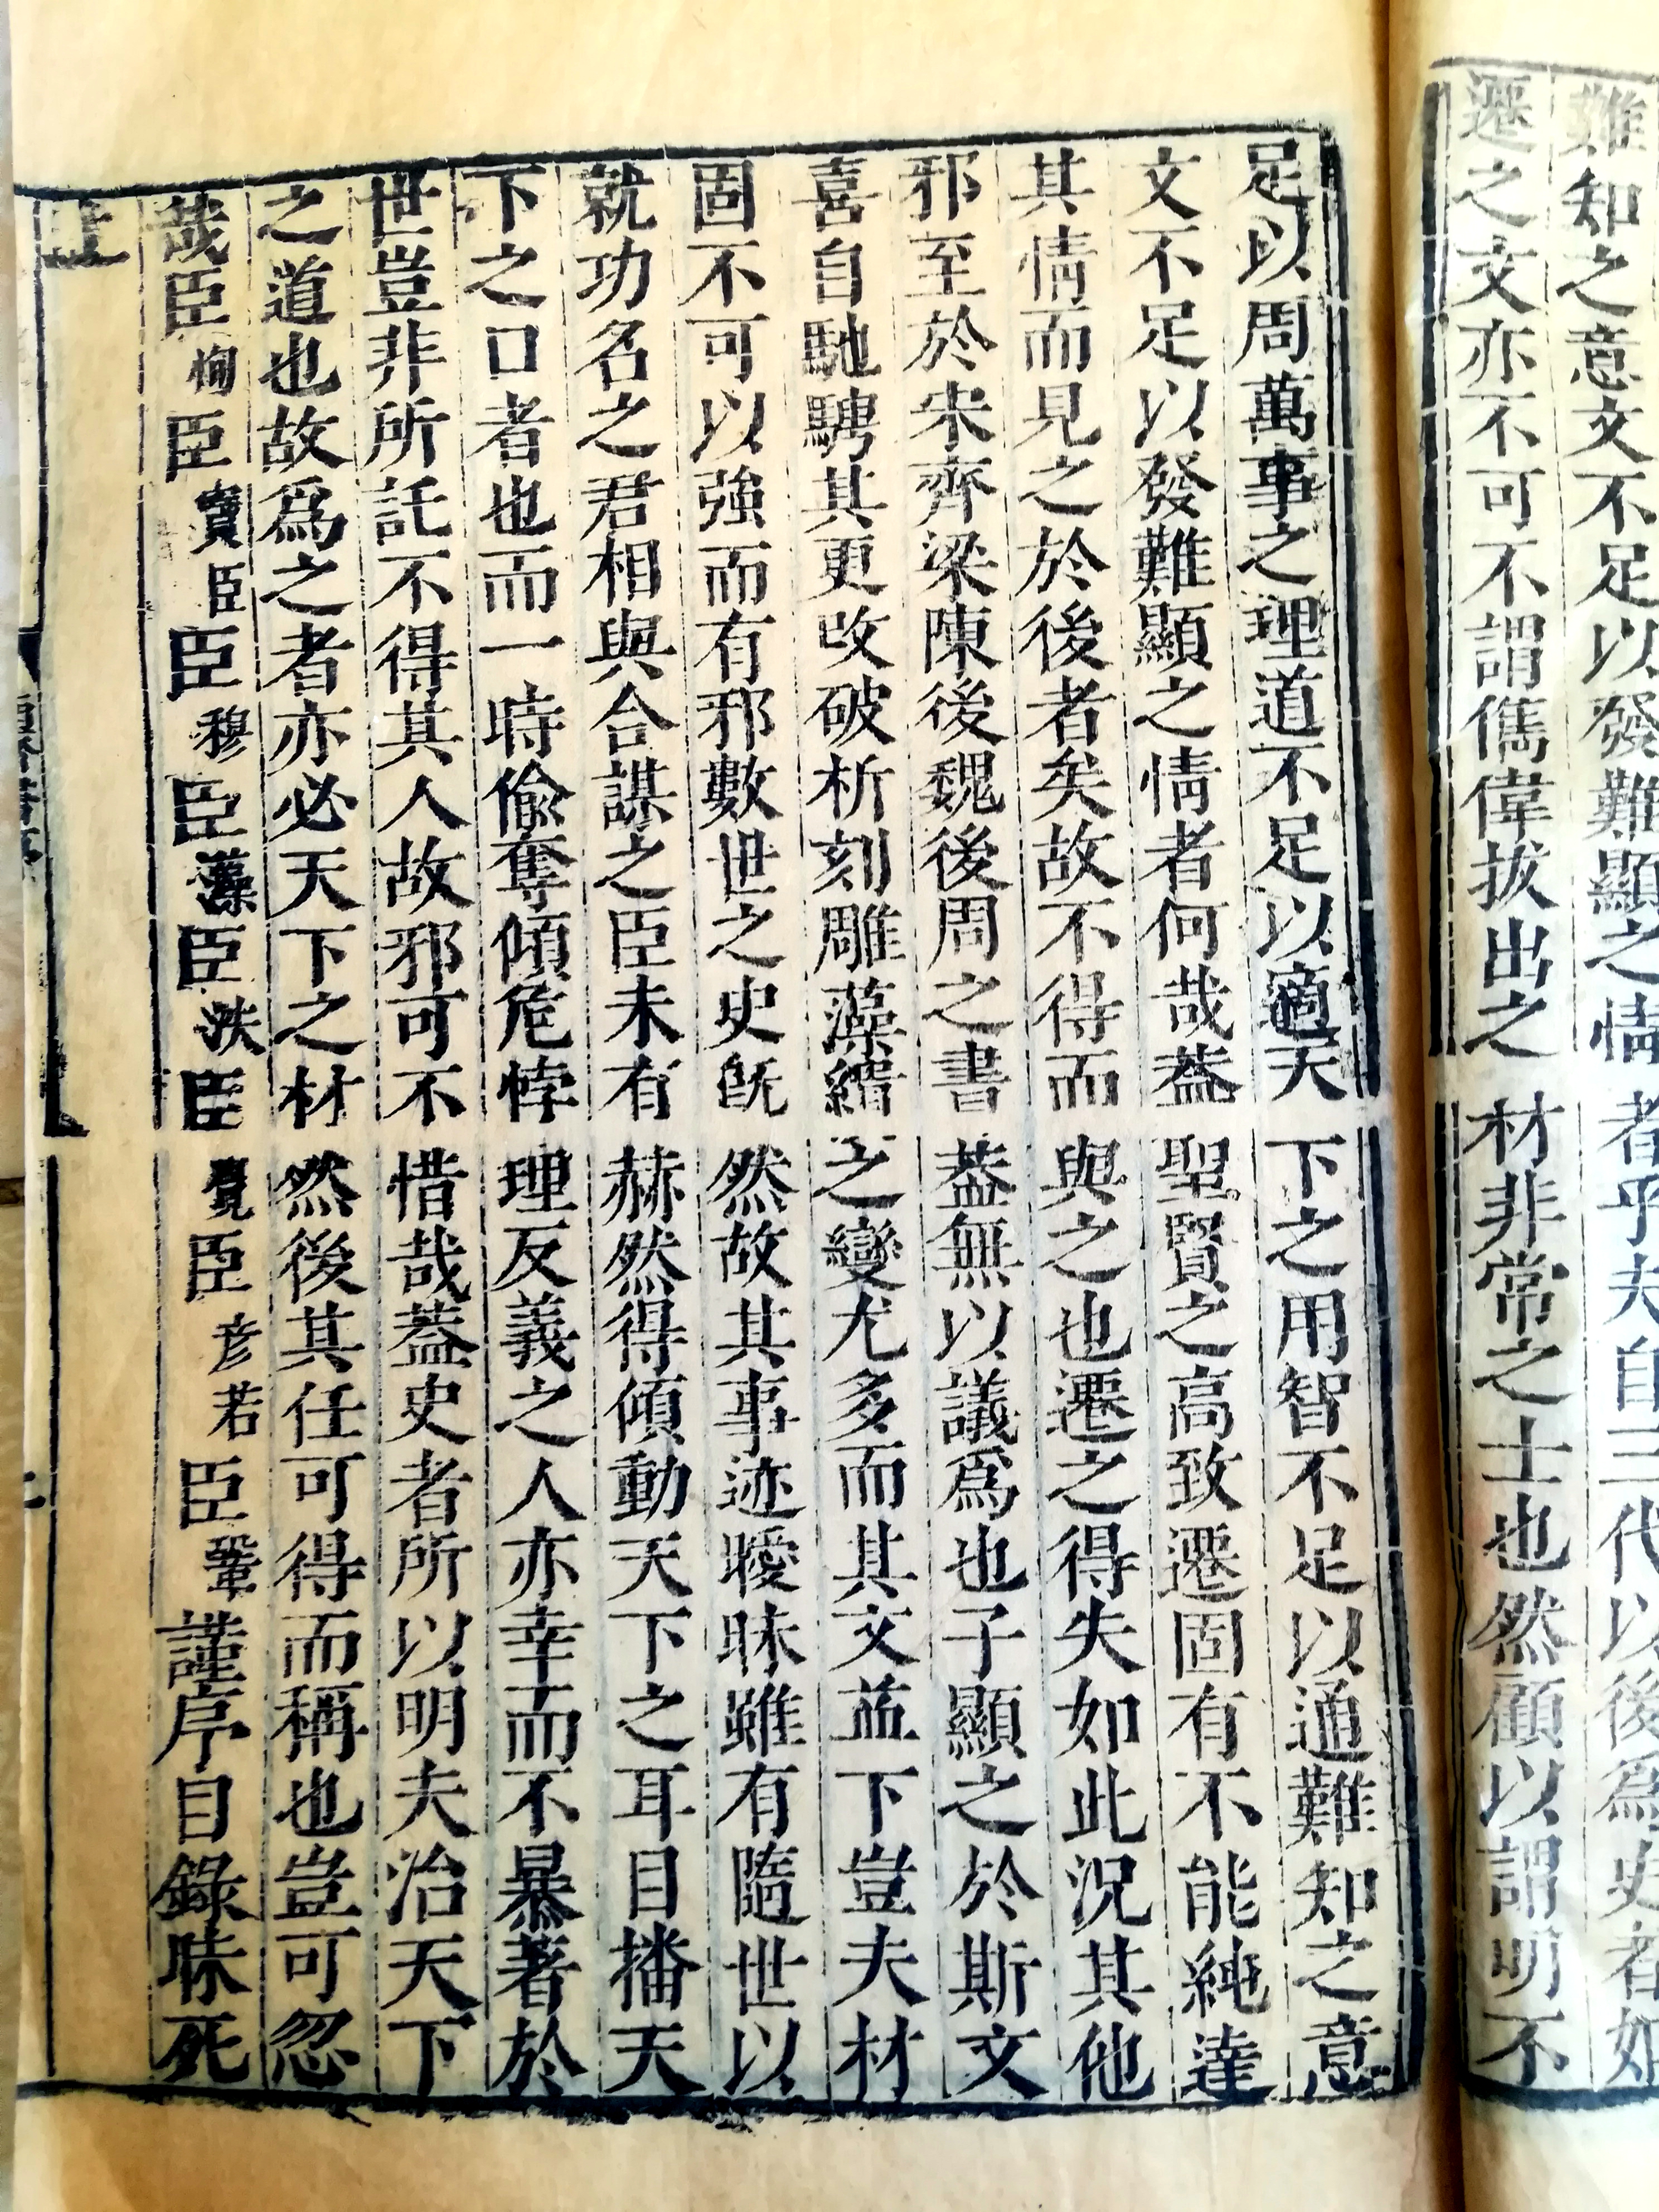 難知之意文不足以發難顯之情者乎夫自三代以後為史者如
遷之文亦不可不謂儁偉拔出之材非常之士也然顧以謂明不
足以周萬事之理道不足以適天下之用智不足以通難知之意
文不足以發難顯之情者何哉蓋聖賢之高致遷固有不能純達
其情而見之於後者矣故不得而與之也遷之得失如此況其他
邪至於宋齊梁陳後魏後周之書蓋無以議爲也子顯之於斯文
喜自馳騁其更攺破析刻雕藻繢之變尤多而其文益下豈夫材
固不可以強而有邪數世之史旣然故其事迹曖昧雖有隨世以
就功名之君相與合謀之臣未有赫然得傾動天下之耳目播天
下之口者也而一時偸奪傾危悖理反義之人亦幸而不暴著於
世豈非所託不得其人故邪可不惜哉蓋史者所以明夫治天下
之道也故爲之者亦必天下之材然後其任可得而稱也豈可忽
哉臣恂臣寶臣臣穆臣藻臣洙臣覺臣彦若臣鞏謹序目錄昧死
上